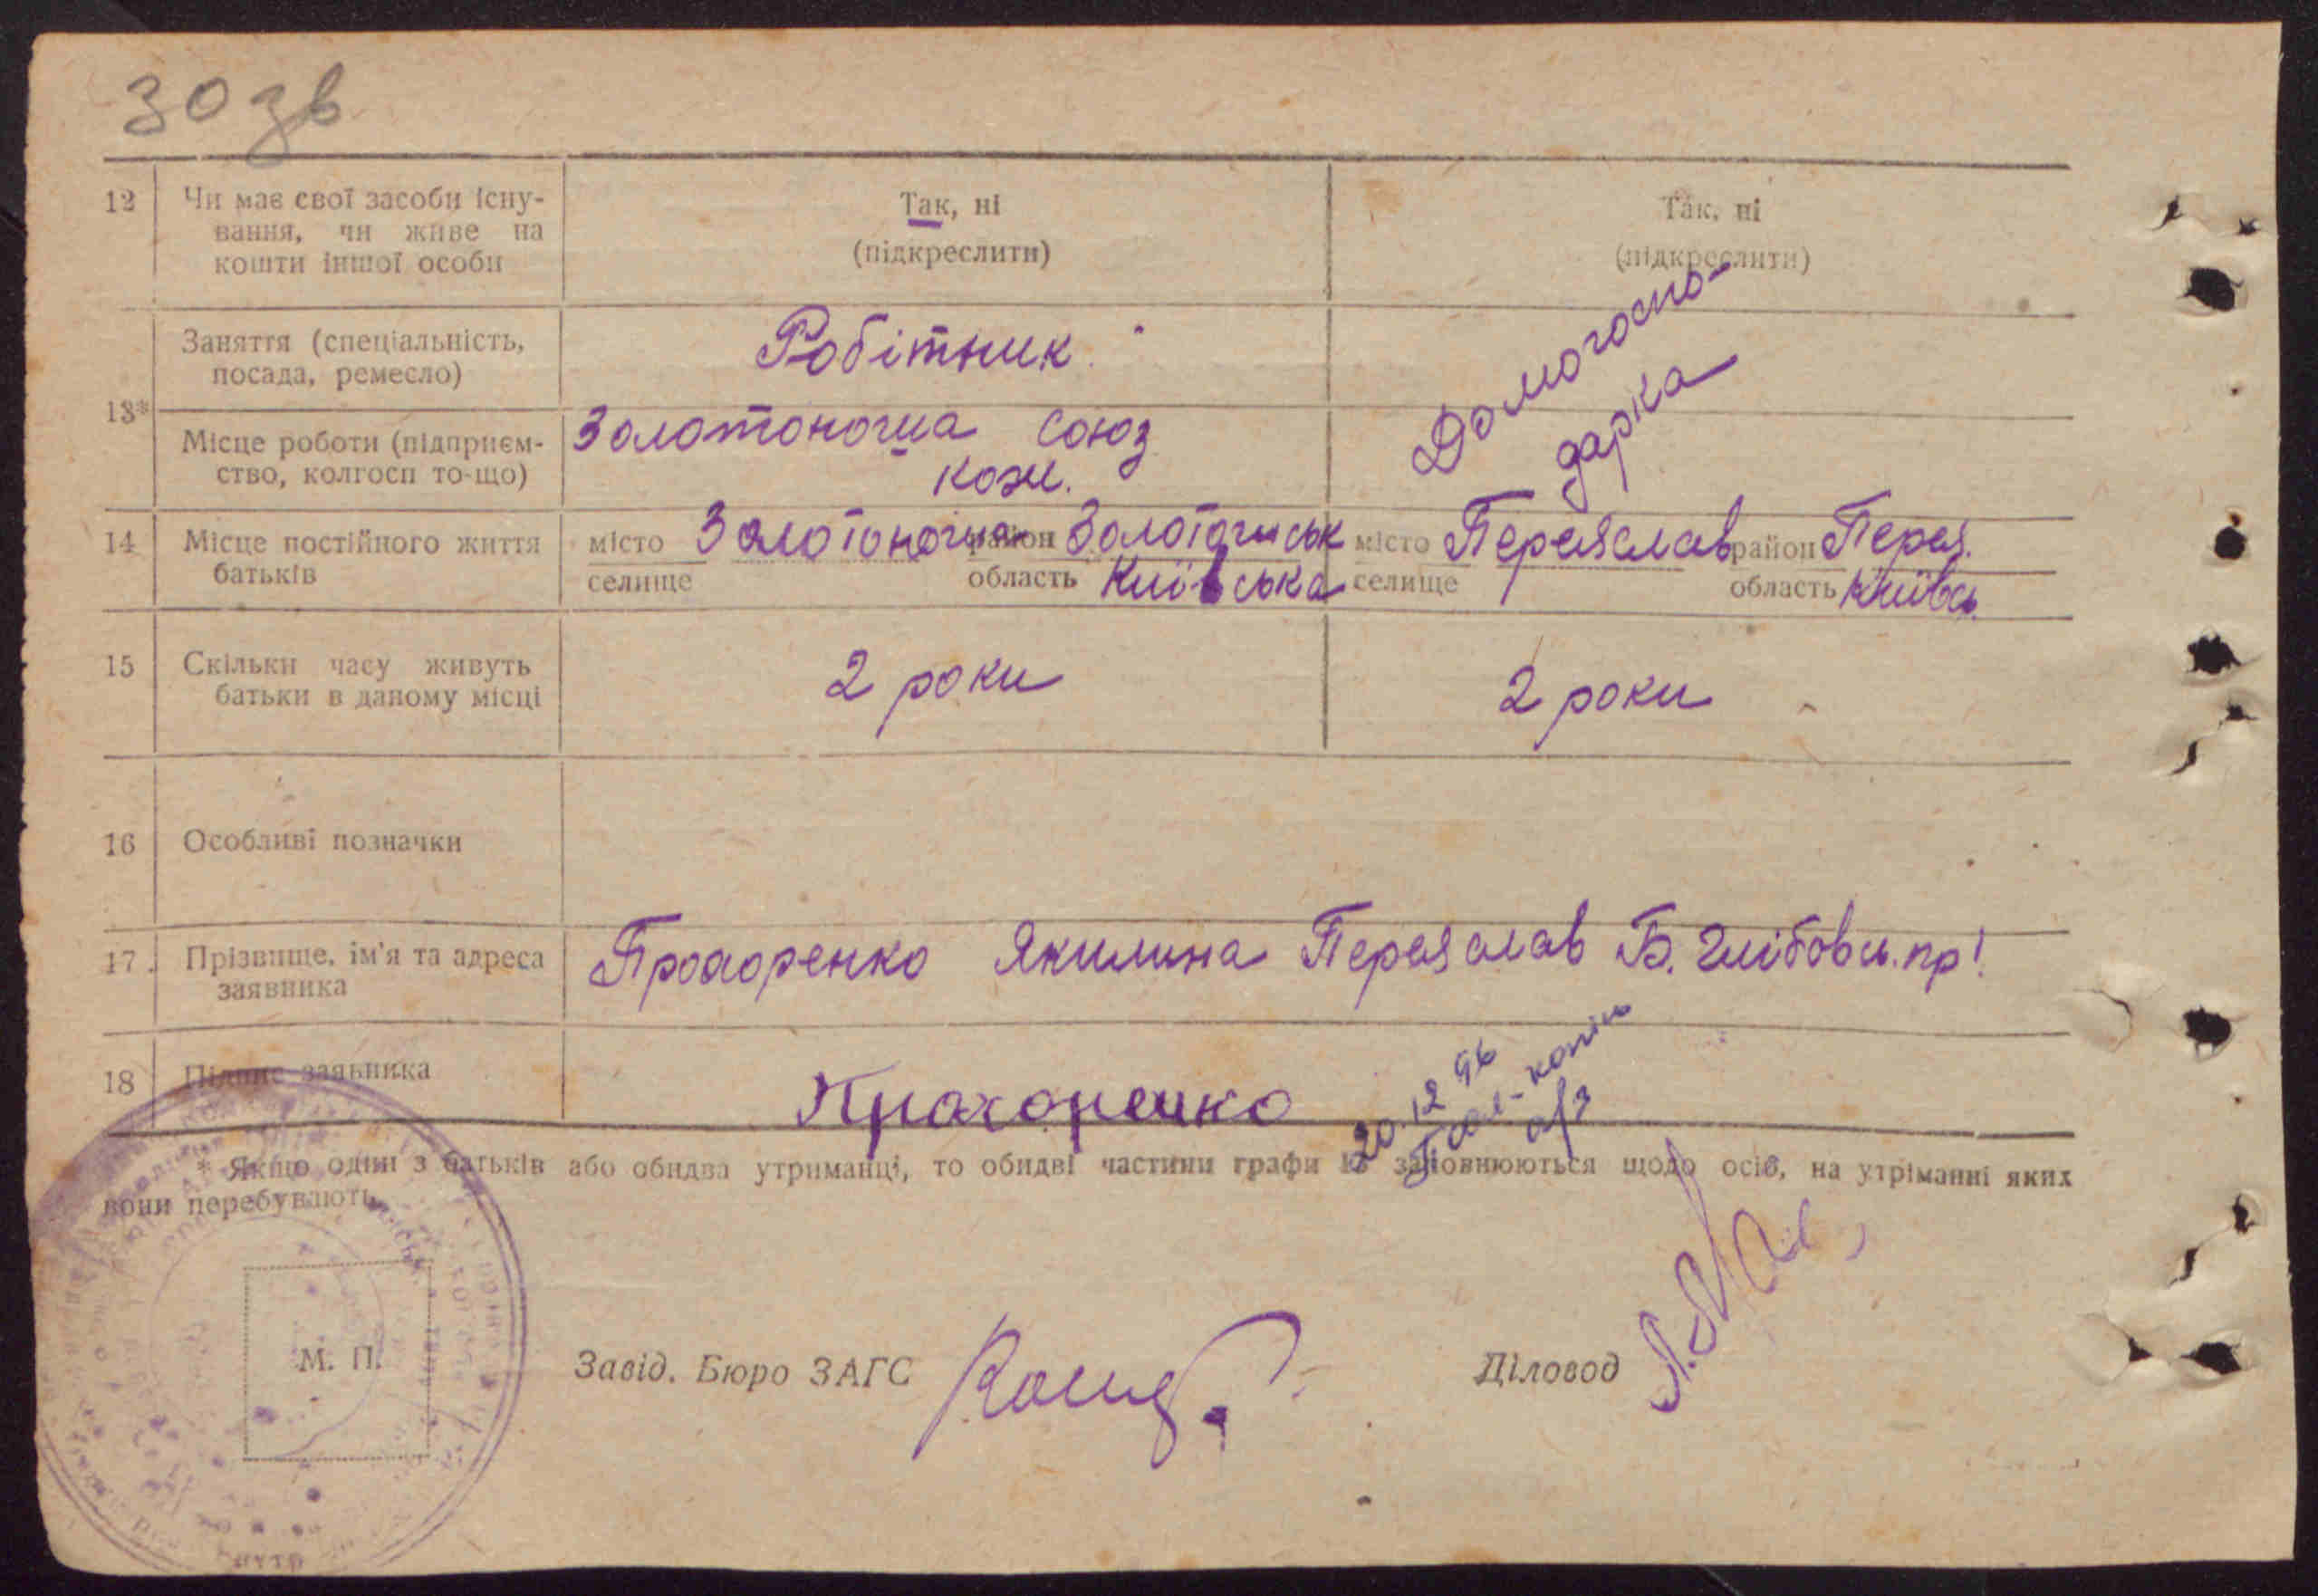 30 зв
12 Чи має свої засоби існу- Так, ні Так, ні
вання, чи живе на (підкреслити) (підкреслити)
кошти іншої особи
13* Заняття (спеціальність, Робітник Домогоспо-
посада, ремесло) дарка
Місце роботи (підприєм- Золотоноша союз
ство, колгосп то-що) кож.
14 Місце постійного життя місто Золотоноша район Золотоніськ місто Переяслав район Перея.
батьків селище область Київська селище область Київсь.
15 Скільки часу живуть 2 роки 2 роки
батьки в даному місці
16 Особливі позначки
17. Прізвище, ім'я та адреса Прохоренко Якилина Переяслав Б. Глібовсь. пр!
заявника
18 Підпис заявника Прахоренко
20.12 96
копію
* Якщо один з батьків або обидва утриманці, то обидві частини графи 13 заповнюються щодо осіб, на утріманні яких
вони перебувають.
М. П.
Завід. Бюро ЗАГС
Діловод